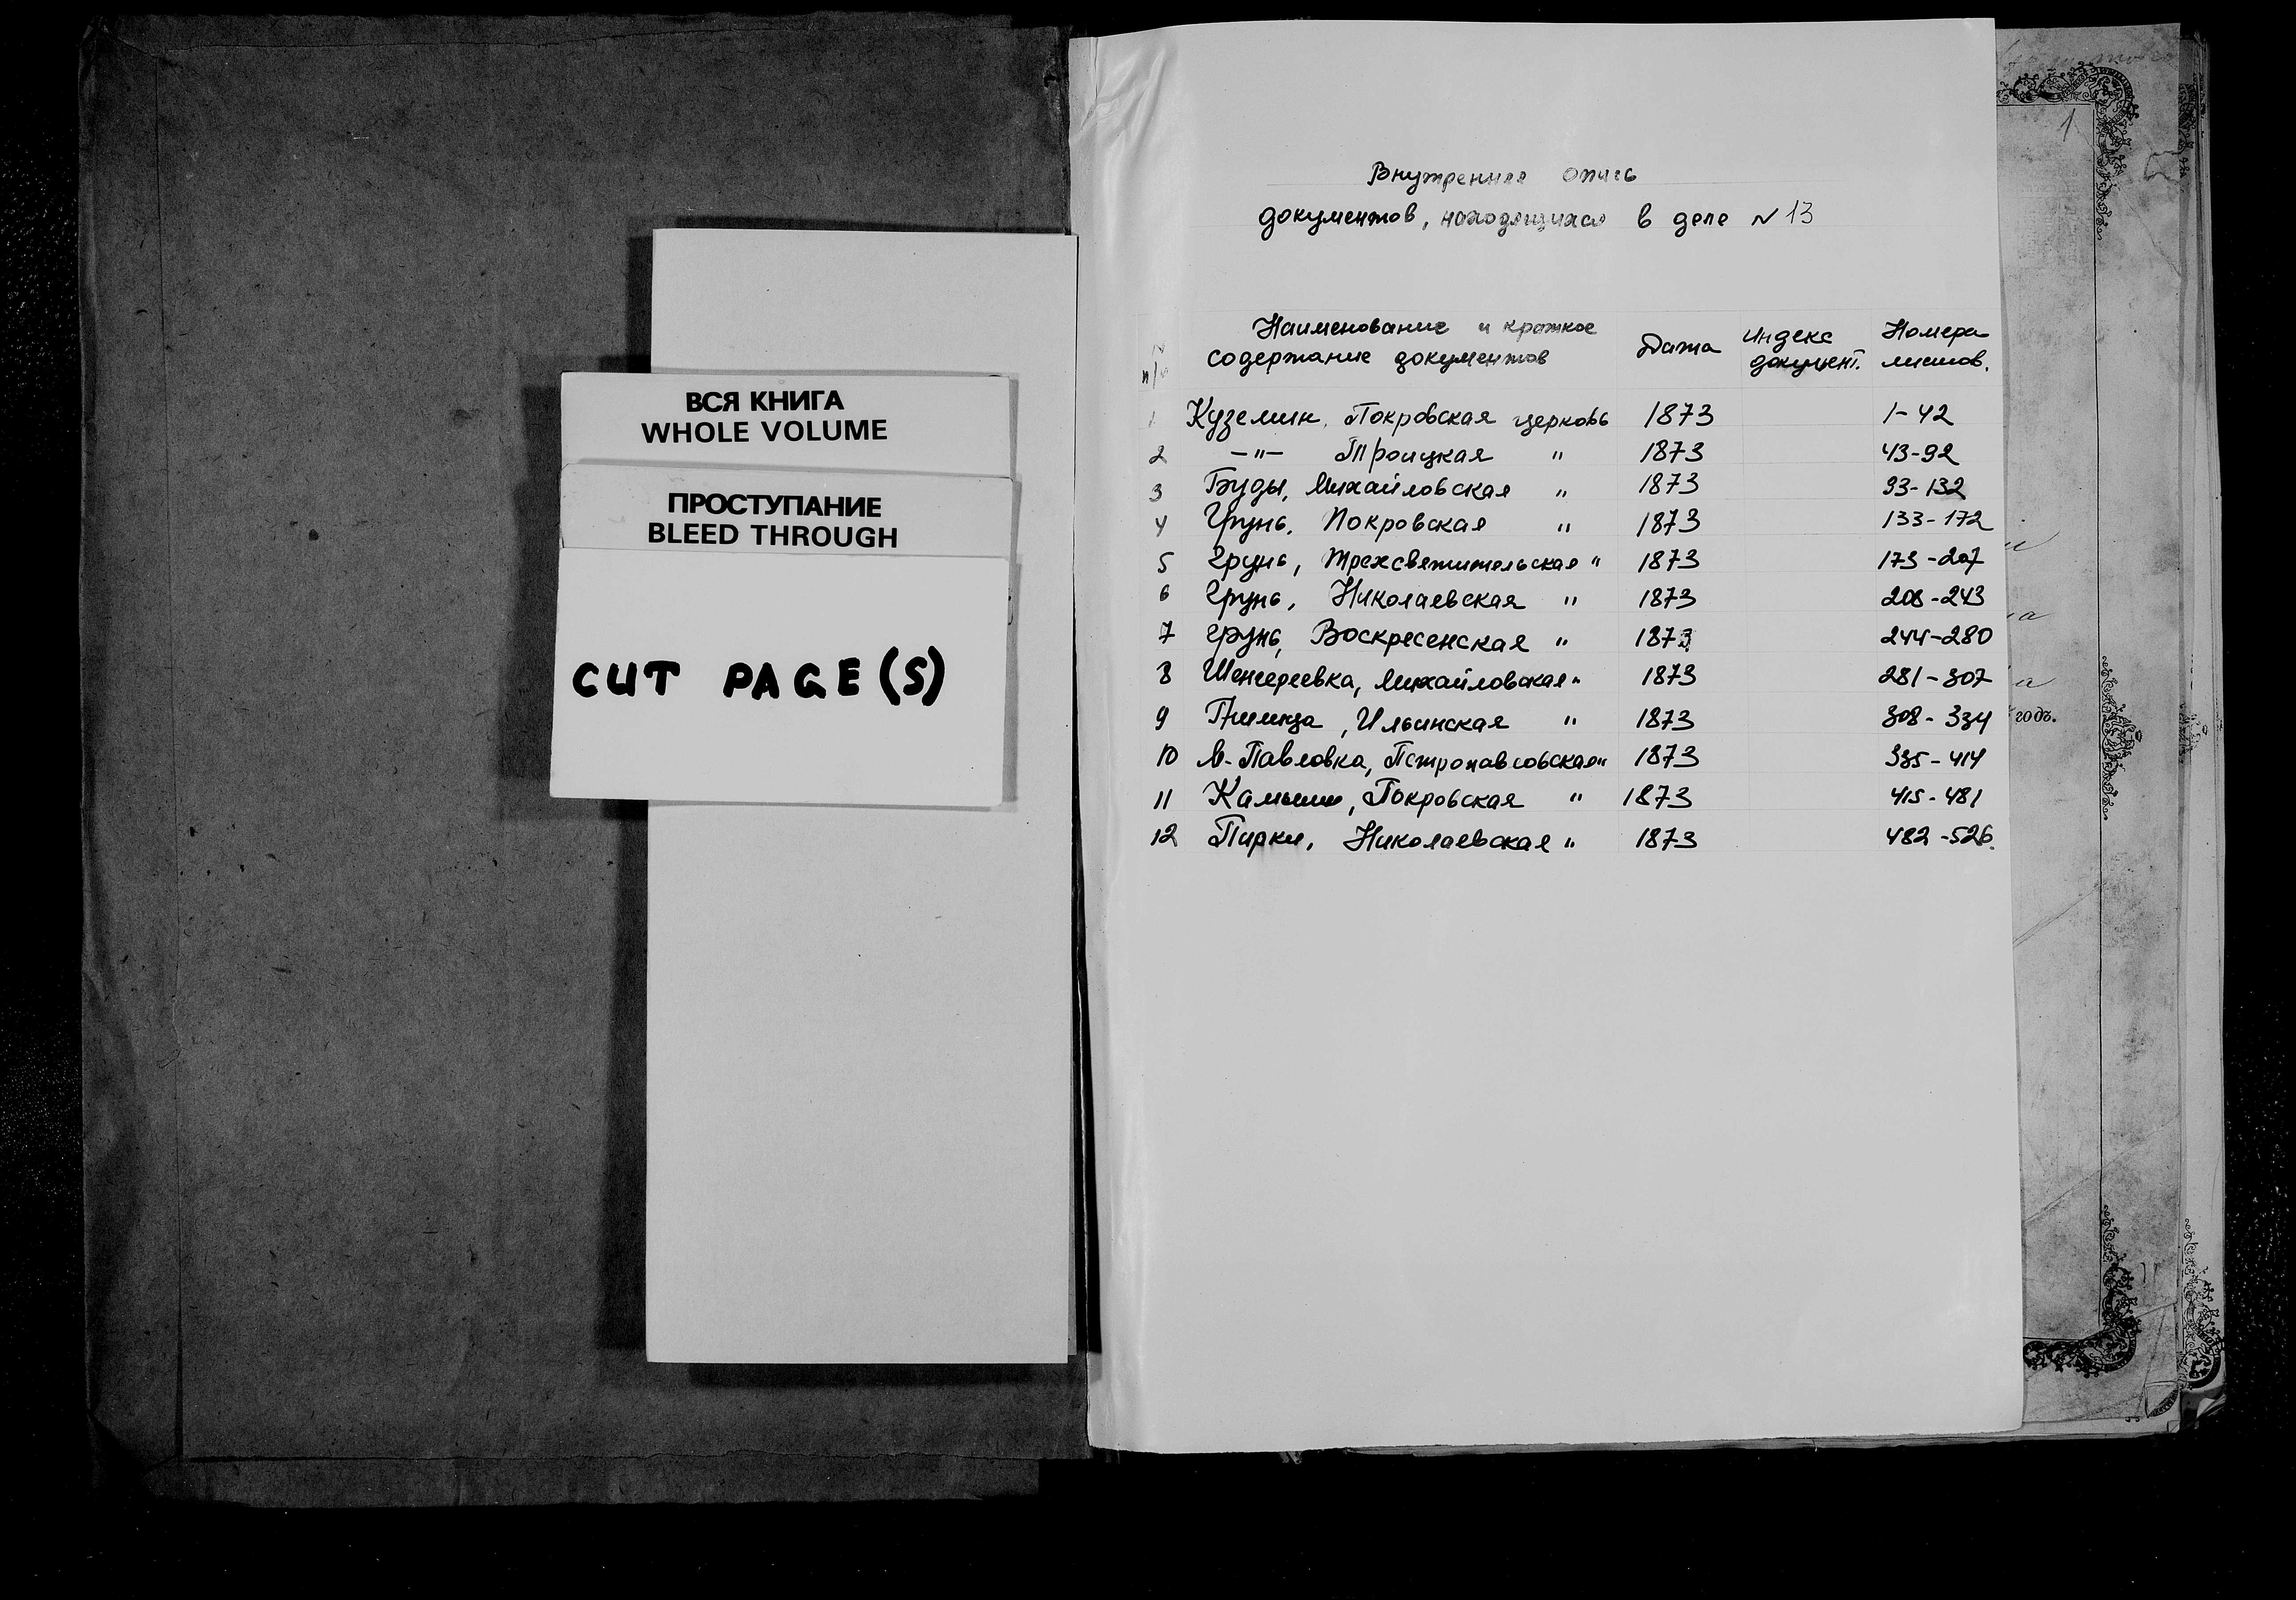 ВСЯ КНИГА
WHOLE VOLUME
ПРОСТУПАНИЕ
BLEED THROUGH
CUT PAGE(S)
Внутренняя опись
документов, находящихся в деле N 13
N п/п Наименование и краткое содержание документов Дата Индекс документ. Номера листов.
1 Куземин, Покровская церковь 1873 1-42
2 -"- Троицкая " 1873 43-92
3 Буды, Михайловская " 1873 93-132
4 Грунь, Покровская " 1873 133-172
5 Грунь, Трехсвятительская " 1873 173-207
6 Грунь, Николаевская " 1873 208-243
7 Грунь, Воскресенская " 1873 244-280
8 Шенгереевка, Михайловская " 1873 281-307
9 Ильинская " 1873 308-334
10 М-Павловка, Петропавловская " 1873 335-414
11 Камыши, Покровская " 1873 415-481
12 Пирки, Николаевская " 1873 482-526.
1
годъ.